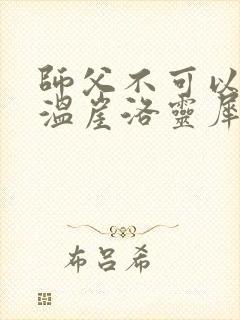 師父不可以
溫崖洛靈犀
布呂希